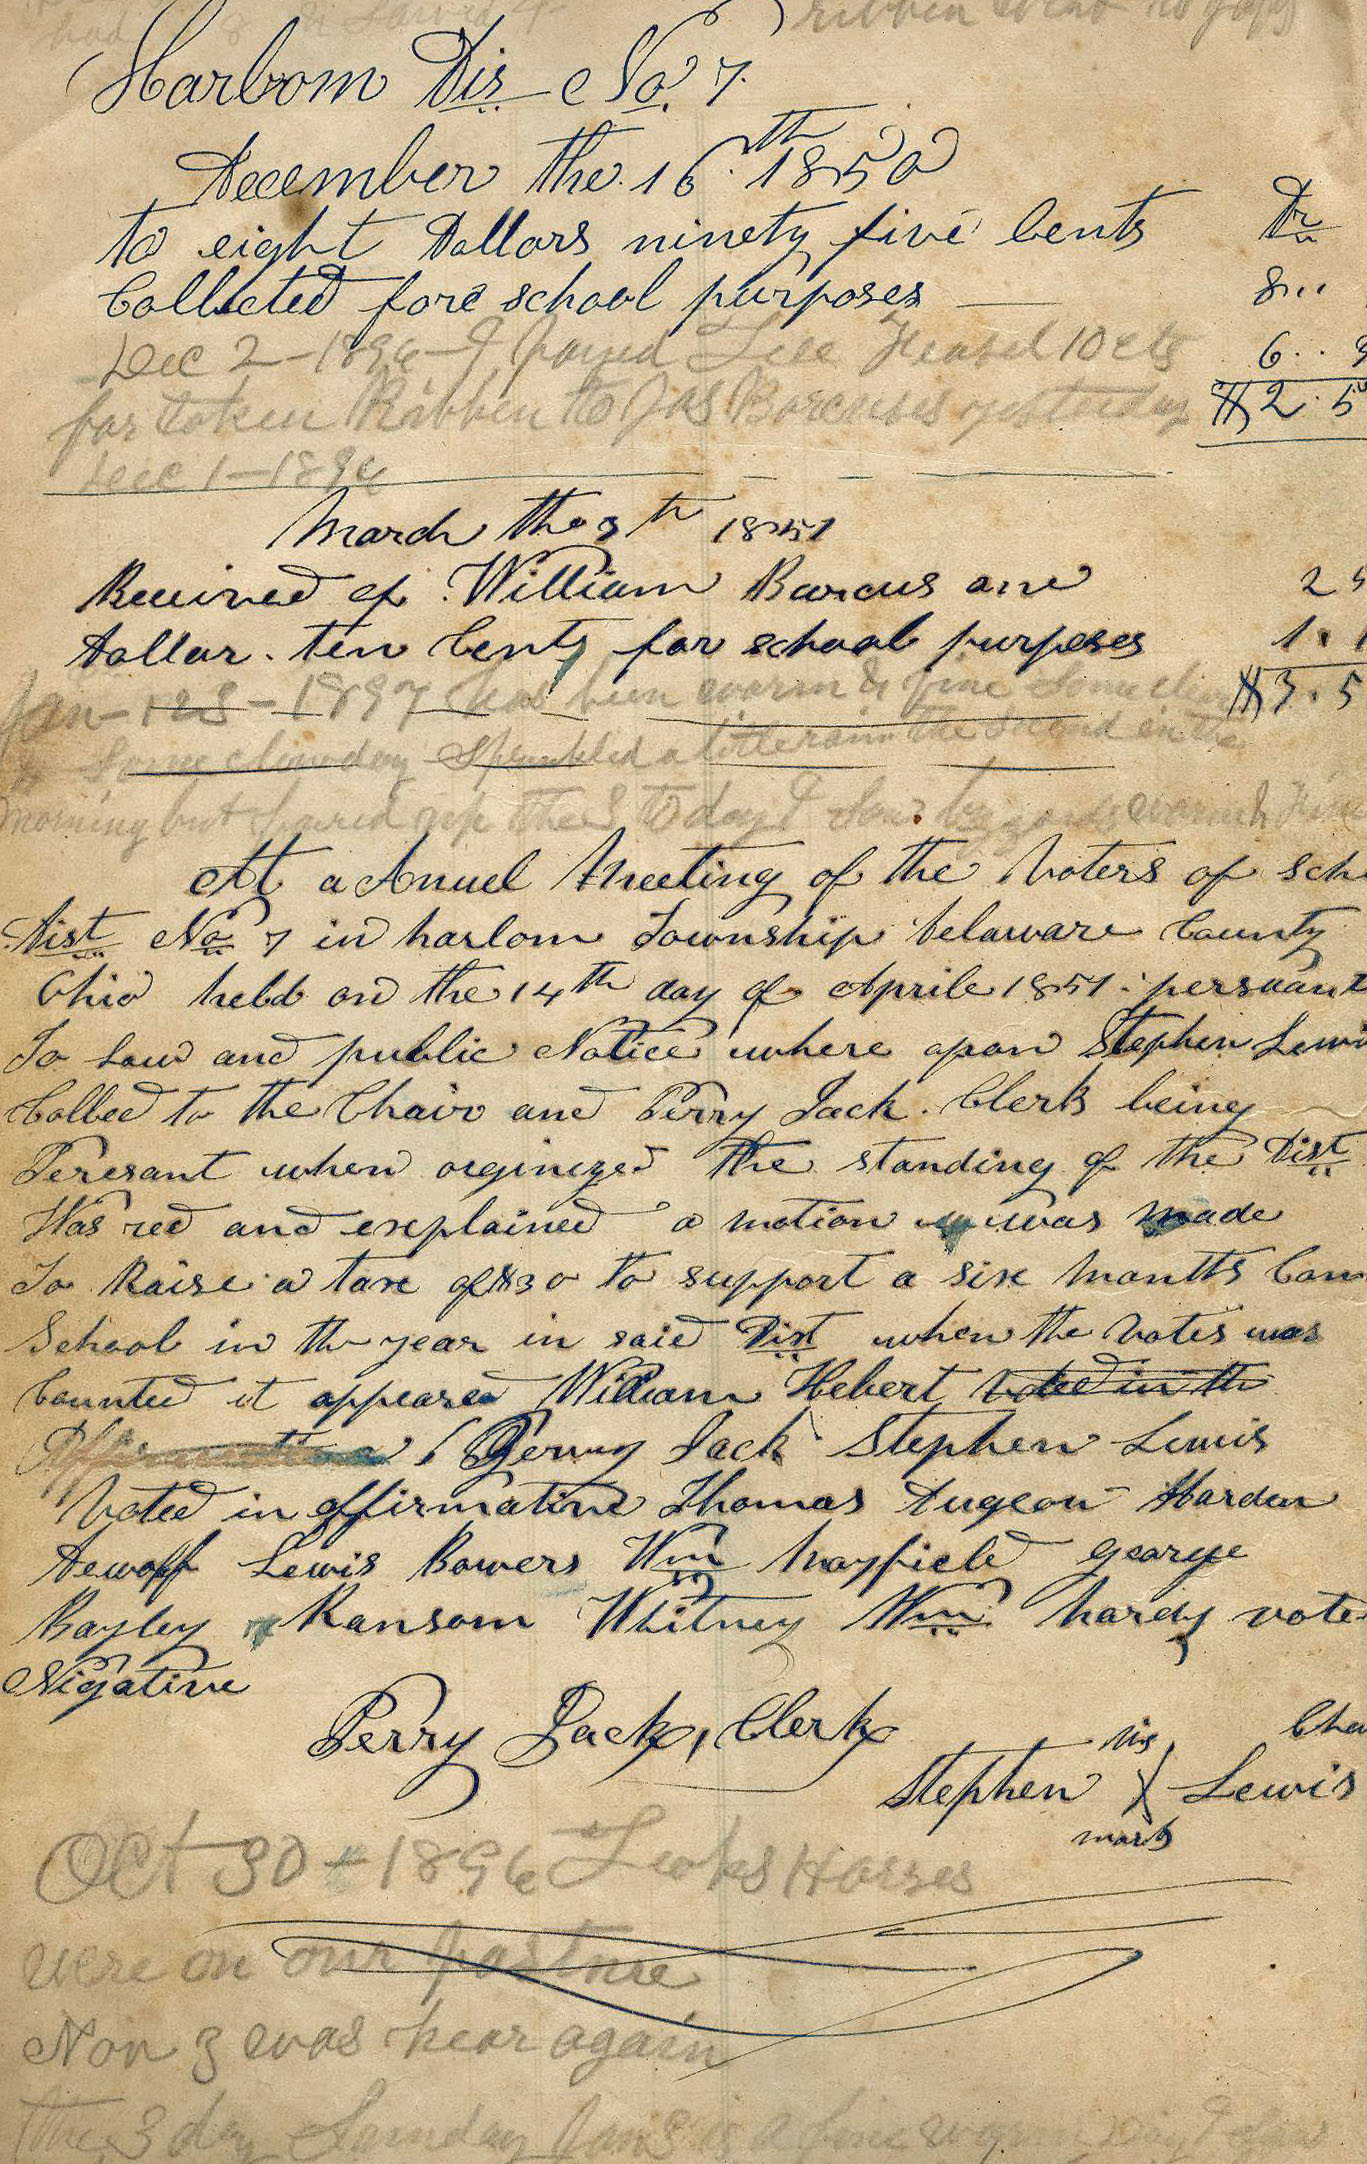 ribben
Harlom Dis No 7.
December the 16th 1850
to eight Dollars ninety five Cents Dr
Collected fore school purposes 8..
Dec 2 - 1896 - I 10 cts 6..
for taken Ribben to Jas Barcuses yesterday $2.5
Dec 1 - 1896
March the th 1851
Received of William Barcus one 2
dollar. ten Cents for school purposes 1.
Jan - 1897 has been warm & fine some $3.5
& some clouday sprinkled a little rain the second in the
morning but up then to day I saw warm &
At a Anuel Meeting of the Voters of sch
Dist No 7 in harlom Township Delaware County
Ohio held on the 14th day of Aprile 1851. persuant
To Law and public Notice where apon Stephen Lewi
Called to the Chair and Perry Jack. Clerk being
Peresant when orginized the standing of the Dist
Was red and explained a motion was made
To Raise a tax of $30 to support a six months Com
School in the year in said Dist when the Votes was
Counted it appeared William Hebert voted in th
Affirmative Perry Jack Stephen Lewis
Voted in affirmative Thomas Dugeon Harden
Dewolf Lewis Bowers Wm Mayfield george
Bayley Ransom Whitney Wm hardy vote
Nigative
Perry Jack, Clerk
his Cha
Stephen X Lewis
mark
Oct 30 - 1896 Horses
were on our pasture
Nov 3 was hear again
the 3 day Sunday Jan 3 is a fine warm day I saw